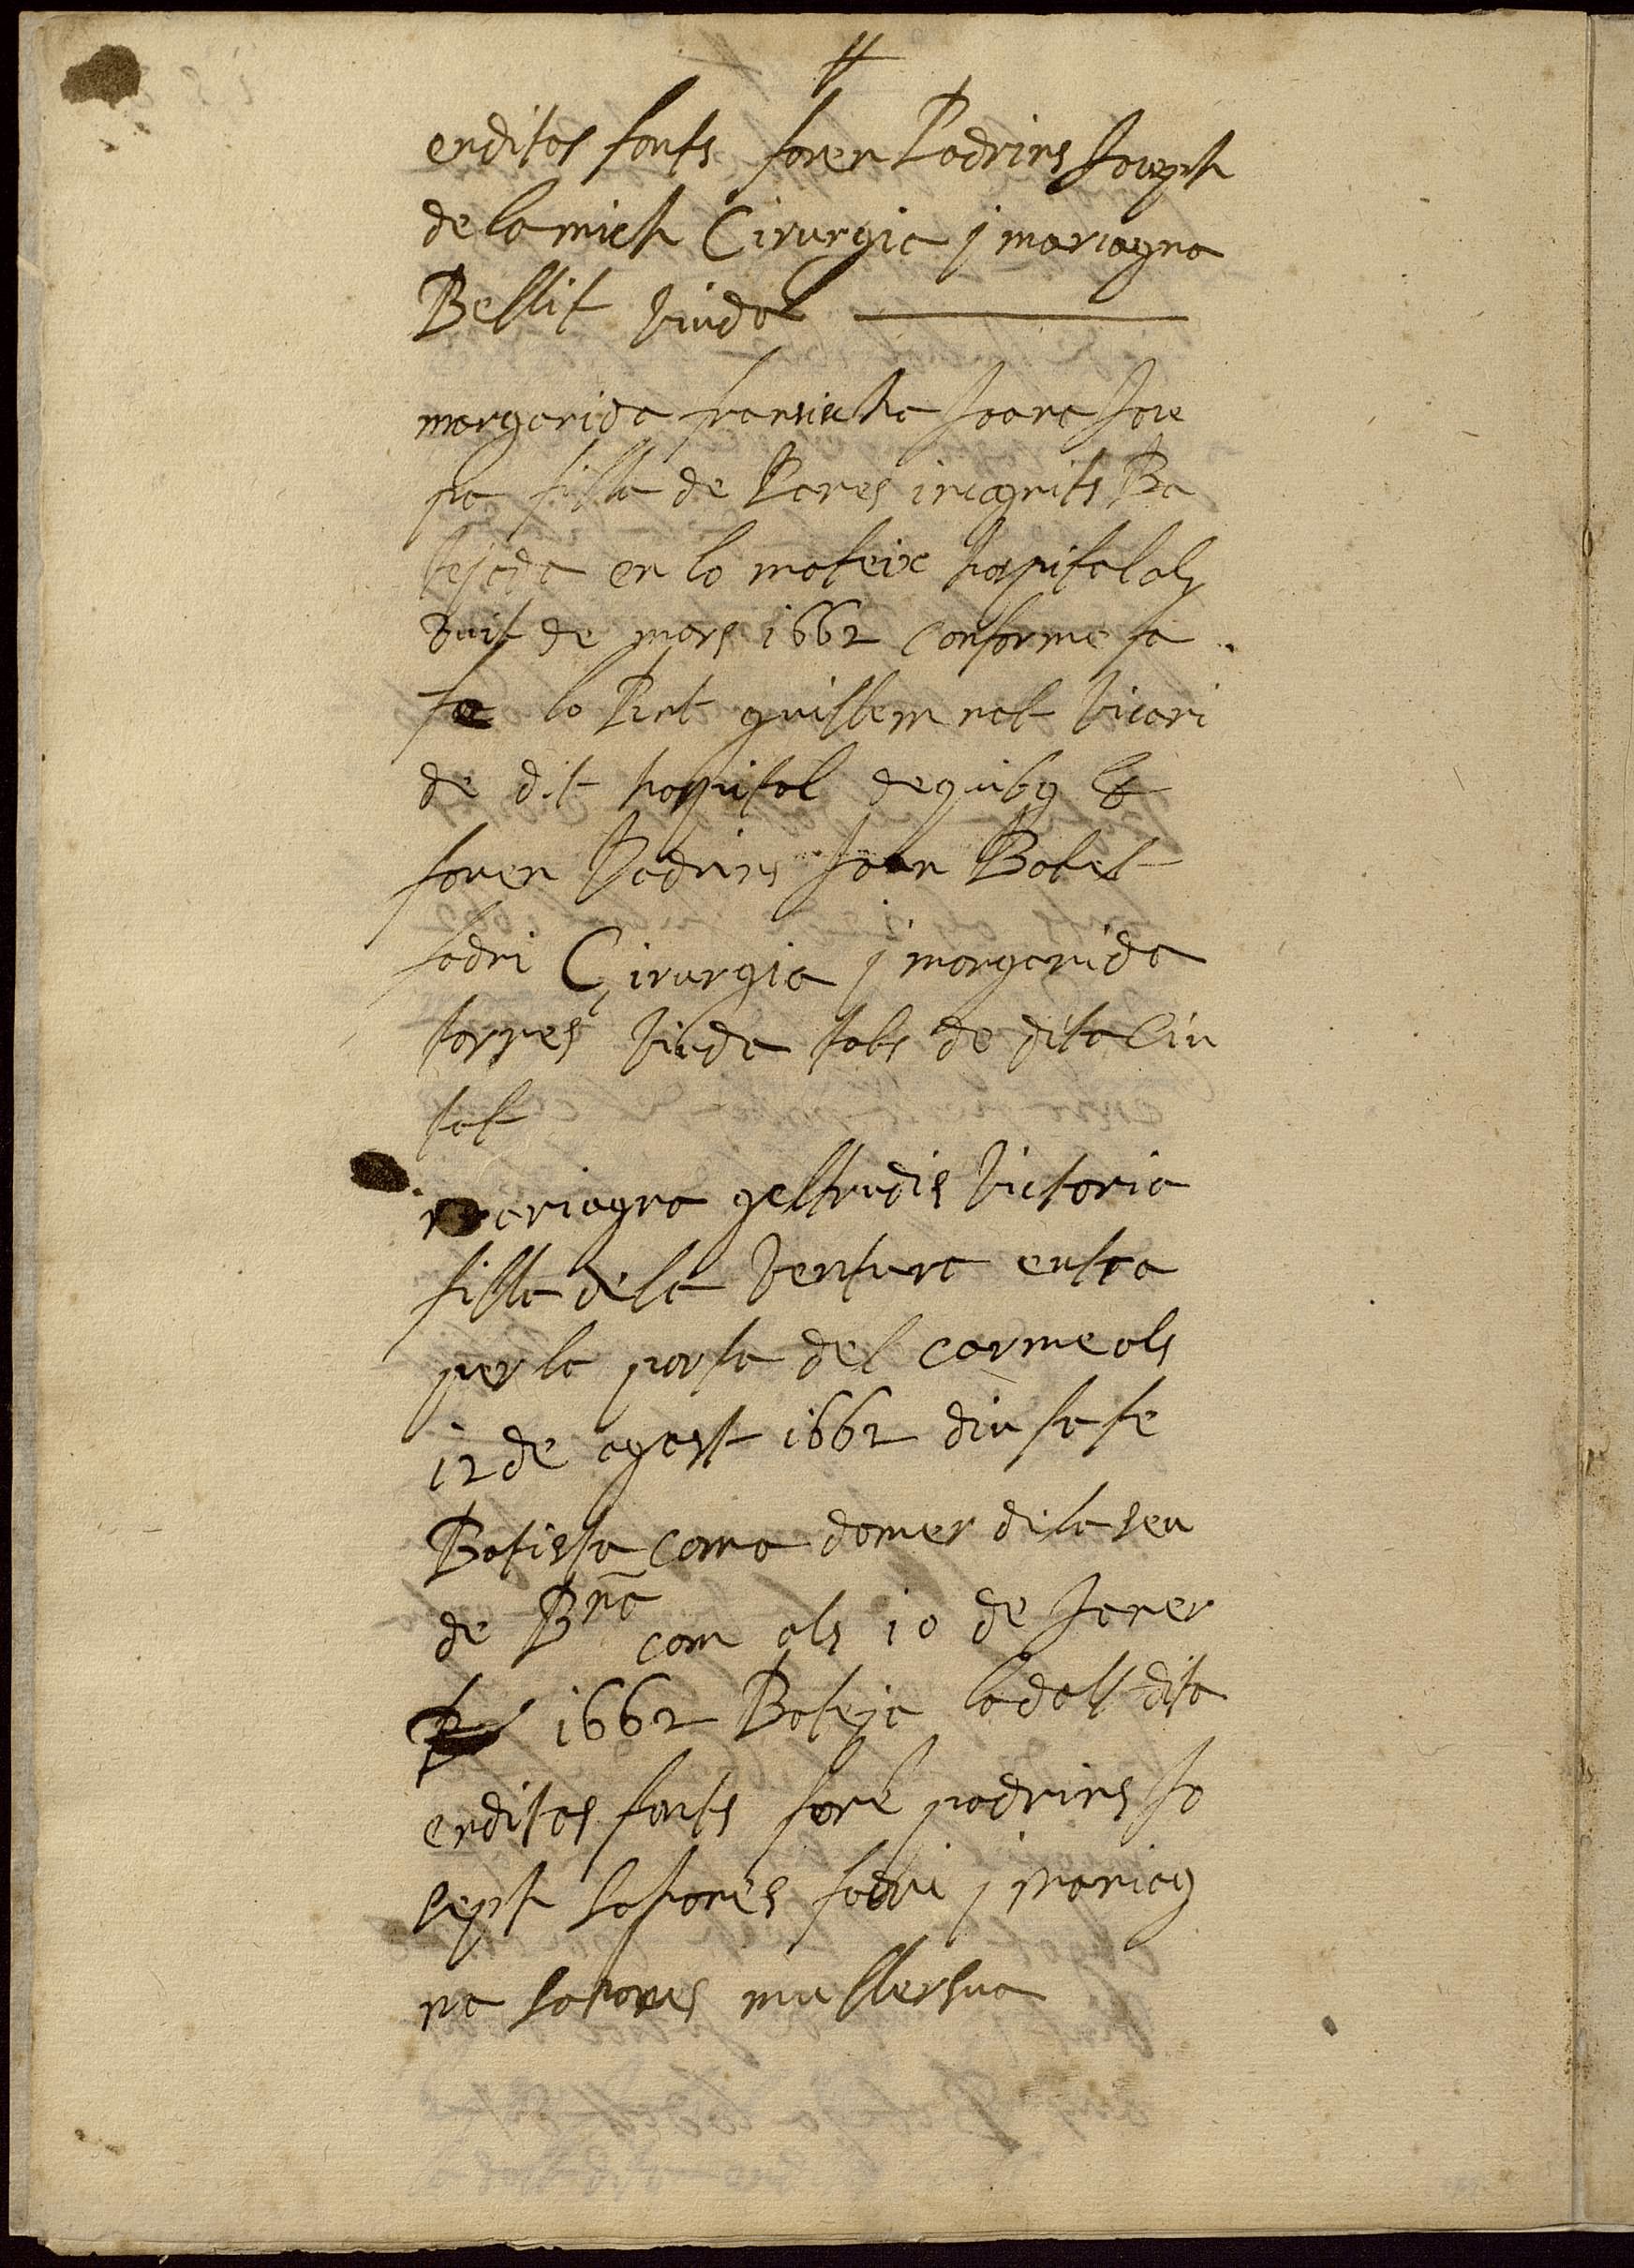 en ditas fonts foren Padrins Joseph
de lamich Cirurgia j mariagna
Bellit viuda
margarida fransischa Joana Jose
pa filla de Pares incognits Ba
tejada en lo mateix hospital als
vuit de mars 1662 conforme fa
fe lo Rnt guillem nat vicari
de dit hospital de quibg &
foren Padrins Joan Batet
fadri Çirurgia j margarida
torres viuda tots de dita Ciu
tat
mariagna geltrudis victoria
filla de la ventura entra
per la porta del carme als
12 de agost 1662 diu sa fe
Batisma coma domer di la seu
de Bna com als 10 de Janer
1662 Bateja la dalt dita
en ditas fonts forē padrins Jo
seph safones fadri j mariag
na safones muller sua